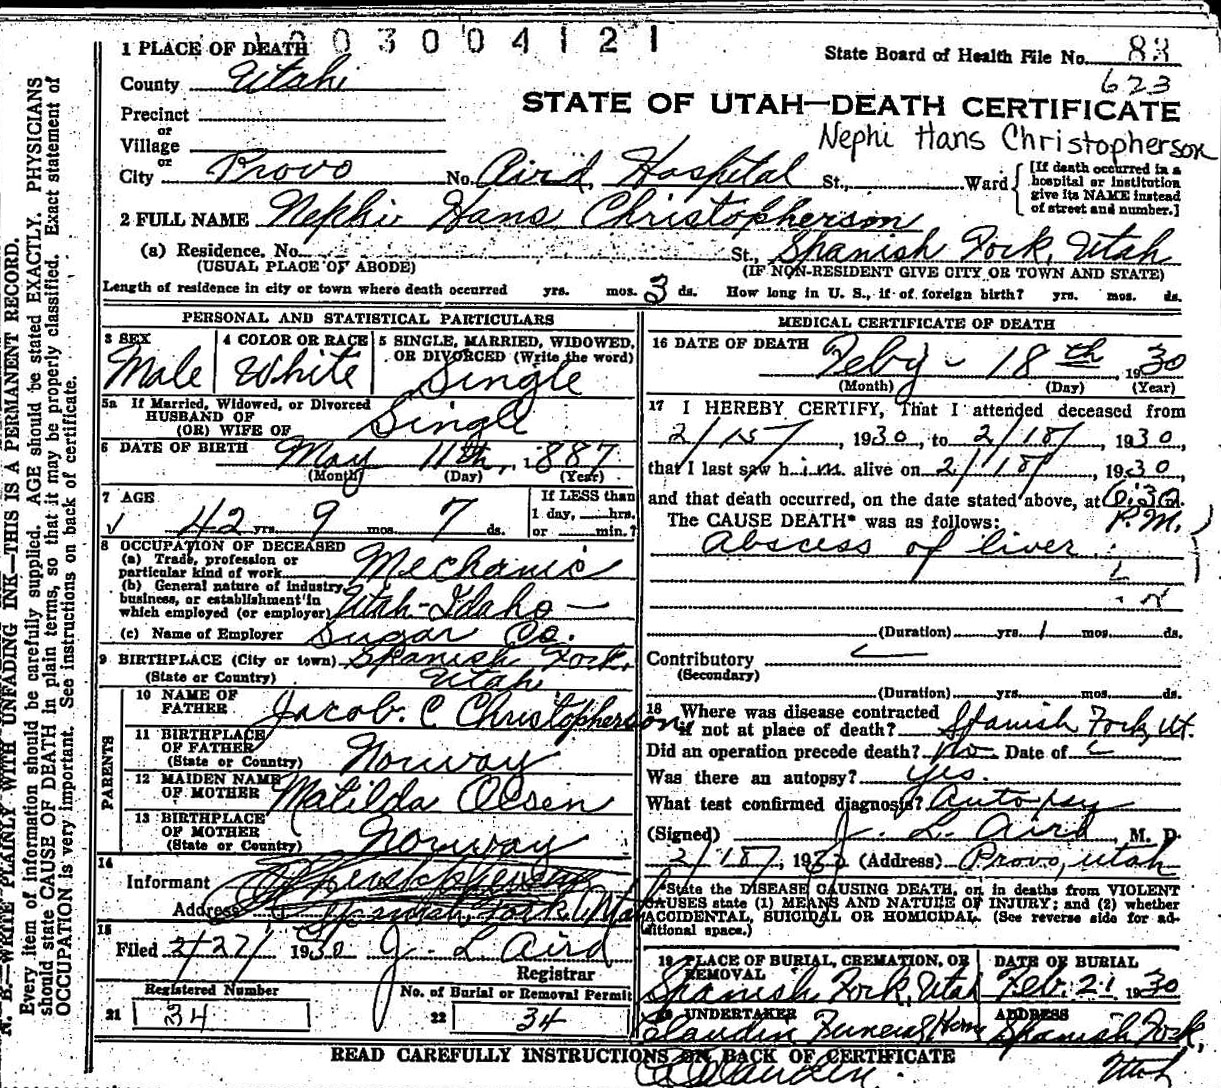 3 0 0 4 1 2 1
1 PLACE OF DEATH
State Board of Health File No. 83
County Utah
623
STATE OF UTAH—DEATH CERTIFICATE
Precinct
or
Village
Nephi Hans Christopherson
or
City Provo No. Aird Hospital St., Ward
[If death occurred in a hospital or institution give its NAME instead of street and number.]
2 FULL NAME Nephi Hans Christopherson
(a) Residence. No. St., Spanish Fork, Utah
(USUAL PLACE OF ABODE) (IF NON-RESIDENT GIVE CITY OR TOWN AND STATE)
Length of residence in city or town where death occurred yrs. mos. 3 ds. How long in U. S., if of foreign birth? yrs. mos. ds.
PERSONAL AND STATISTICAL PARTICULARS
3 SEX Male
4 COLOR OR RACE White
5 SINGLE, MARRIED, WIDOWED, OR DIVORCED (Write the word) Single
5a If Married, Widowed, or Divorced
HUSBAND OF
(OR) WIFE OF Single
6 DATE OF BIRTH May 11th, 1887
(Month) (Day) (Year)
7 AGE
42 yrs. 9 mos. 7 ds.
If LESS than
1 day, hrs.
or min.?
8 OCCUPATION OF DECEASED
(a) Trade, profession or
particular kind of work Mechanic
(b) General nature of industry,
business, or establishment in
which employed (or employer) Utah-Idaho—
(c) Name of Employer Sugar Co.
9 BIRTHPLACE (City or town) Spanish Fork,
(State or Country) Utah
PARENTS
10 NAME OF FATHER Jacob. C. Christopherson
11 BIRTHPLACE OF FATHER
(State or Country) Norway
12 MAIDEN NAME OF MOTHER Matilda Olsen
13 BIRTHPLACE OF MOTHER
(State or Country) Norway
14
Informant
Address Spanish Fork, Utah
15
Filed 2/27/ 1930 J. L. Aird
Registrar
Registered Number
21 34
No. of Burial or Removal Permit
22 34
MEDICAL CERTIFICATE OF DEATH
16 DATE OF DEATH Feby - 18th, 1930
(Month) (Day) (Year)
17 I HEREBY CERTIFY, That I attended deceased from
2/15/, 1930, to 2/18/, 1930,
that I last saw him alive on 2/18/ 1930,
and that death occurred, on the date stated above, at 6:30
P.M.
The CAUSE DEATH* was as follows:
Abscess of liver
(Duration) yrs. 1 mos. ds.
Contributory
(Secondary)
(Duration) yrs. mos. ds.
18 Where was disease contracted
if not at place of death? Spanish Fork, Ut.
Did an operation precede death? No Date of
Was there an autopsy? yes.
What test confirmed diagnosis? Autopsy
(Signed) J. L. Aird, M. D.
2/18/, 1930 (Address) Provo, Utah
*State the DISEASE CAUSING DEATH, or, in deaths from VIOLENT
CAUSES state (1) MEANS AND NATURE OF INJURY; and (2) whether
ACCIDENTAL, SUICIDAL OR HOMICIDAL. (See reverse side for additional space.)
19 PLACE OF BURIAL, CREMATION, OR REMOVAL
Spanish Fork, Utah
DATE OF BURIAL
Feb. 21 1930
20 UNDERTAKER
Claudin Funeral Home
ADDRESS
Spanish Fork,
Utah
READ CAREFULLY INSTRUCTIONS ON BACK OF CERTIFICATE
N. B.—WRITE PLAINLY WITH UNFADING INK—THIS IS A PERMANENT RECORD.
Every item of information should be carefully supplied. AGE should be stated EXACTLY. PHYSICIANS
should state CAUSE OF DEATH in plain terms, so that it may be properly classified. Exact statement of
OCCUPATION is very important. See instructions on back of certificate.